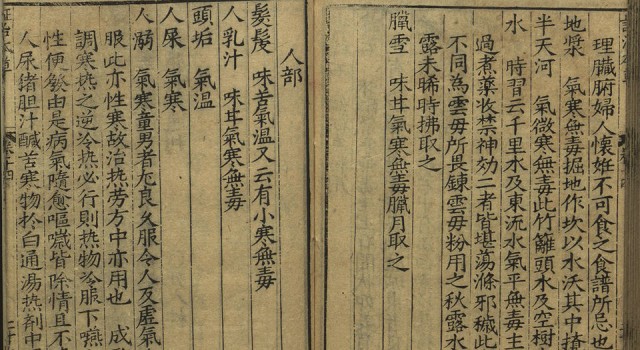 理臟腑婦人懷姙不可食之食譜所忌也
地漿 氣寒無毒掘地作坎以水沃其中攪
半天河 氣微寒無毒此竹籬頭水及空樹
水 時習云千里水及東流水氣平無毒主
過煮藥收禁神効二者皆堪蕩滌邪穢此
不同為雲毋所畏鍊雲毋粉用之秋露水
露未晞時拂取之
臘雪 味甘氣寒無毒臘月取之
人部
髮髲 味苦氣温又云有小寒無毒
人乳汁 味甘氣寒無毒
頭垢 氣温
人屎 氣寒
人溺 氣寒童男者尤良久服令人反虛氣
服此亦性寒故治热劳方中亦用也 成
調寒热之逆冷热必行則热物冷服下嚥
性便發由是病氣隨愈嘔噦皆除情且不
人尿猪胆汁鹹苦寒物扵白通湯热剤中